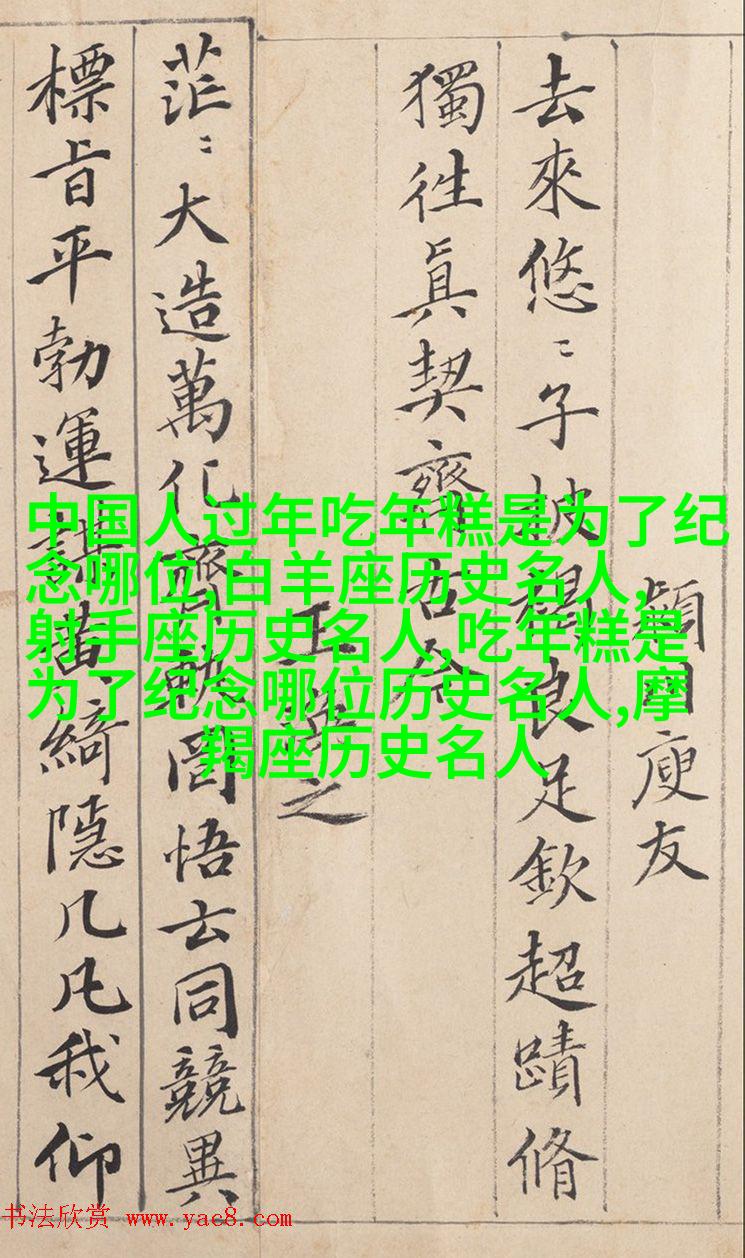 頴川庾友
去來悠〻子披褐良足欽超蹟脩
獨往真契齊古今
王渙之
茫〻大造萬化齊軌罔悟玄同競異
標旨平勃運謀黃綺隱几凡我仰
中国人过年吃年糕是为了纪
念哪位,白羊座历史名人,
射手座历史名人,吃年糕是
为了纪念哪位历史名人,摩
羯座历史名人
书法欣赏 www.yac8.com